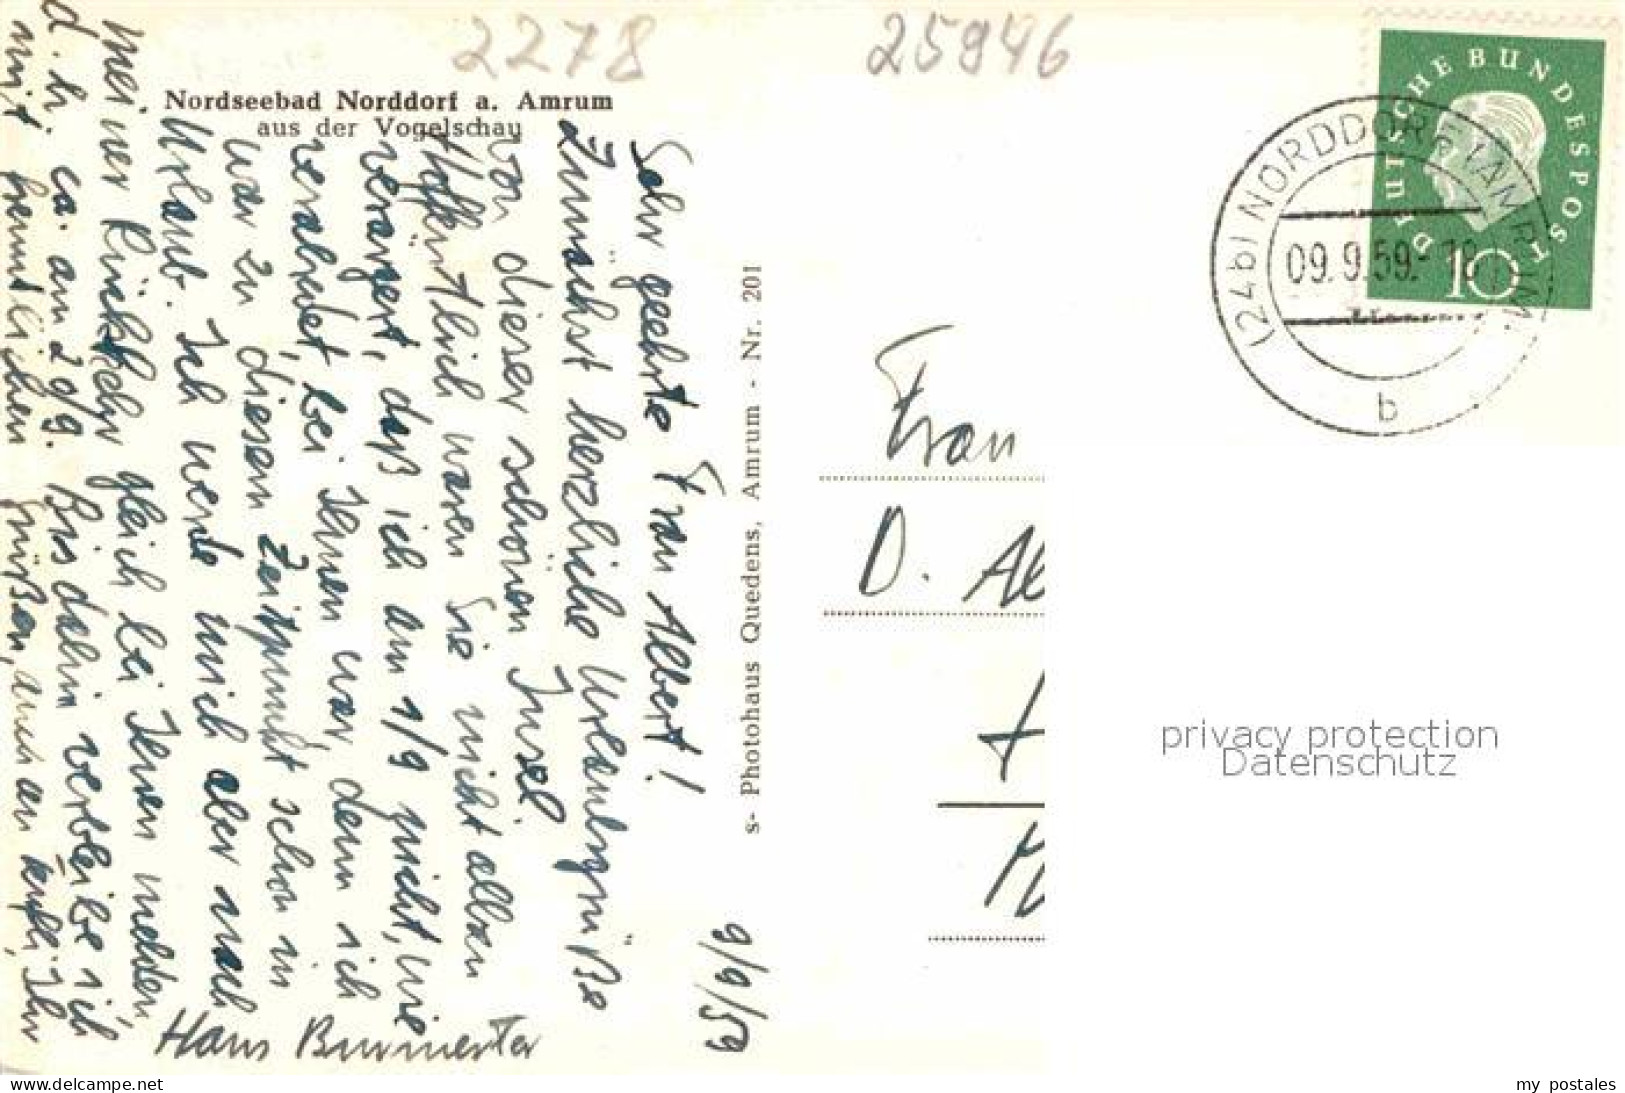 2278
25946
Nordseebad Norddorf a. Amrum
aus der Vogelschau
9/9/59
Sehr geehrte Frau Albert!
Zunächst herzliche Urlaubsgrüße
von dieser schönen Insel.
Hoffentlich waren Sie nicht allzu
verärgert, daß ich am 1/9 nicht, wie
verabredet, bei Ihnen war, denn ich
war zu diesem Zeitpunkt schon in
Urlaub. Ich werde mich aber nach
meiner Rückkehr gleich bei Ihnen melden,
d. h. ca. am 20/9. Bis dahin verbleibe ich
mit freundlichen Grüßen, auch an Ihr
Hans Burmester
s- Photohaus Quedens, Amrum - Nr. 201
DEUTSCHE BUNDESPOST
10
(24b) NORDDORF (AMRUM)
09.9.59.-18
b
Frau
D. Al
privacy protection
Datenschutz
www.delcampe.net
my_postales